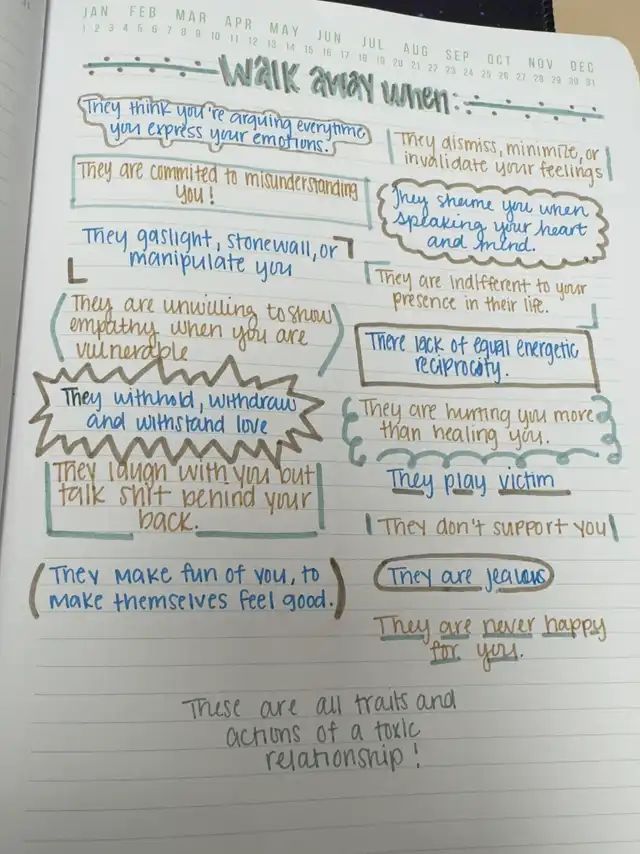 JAN FEB MAR APR MAY JUN JUL AUG SEP OCT NOV DEC
1 2 3 4 5 6 7 8 9 10 11 12 13 14 15 16 17 18 19 20 21 22 23 24 25 26 27 28 29 30 31
Walk away when:
They think you're arguing everytime
you express your emotions.
They dismiss, minimize, or
invalidate your feelings
They are commited to misunderstanding
you!
They shame you when
speaking your heart
and mind.
They gaslight, stonewall, or
manipulate you
They are indifferent to your
presence in their life.
They are unwilling to show
empathy when you are
vulnerable
There lack of equal energetic
reciprocity.
They withhold, withdraw
and withstand love
They are hurting you more
than healing you.
They laugh with you but
talk shit behind your
back.
They play victim
They don't support you
They make fun of you, to
make themselves feel good.
They are jealous
They are never happy
for you.
These are all traits and
actions of a toxic
relationship!